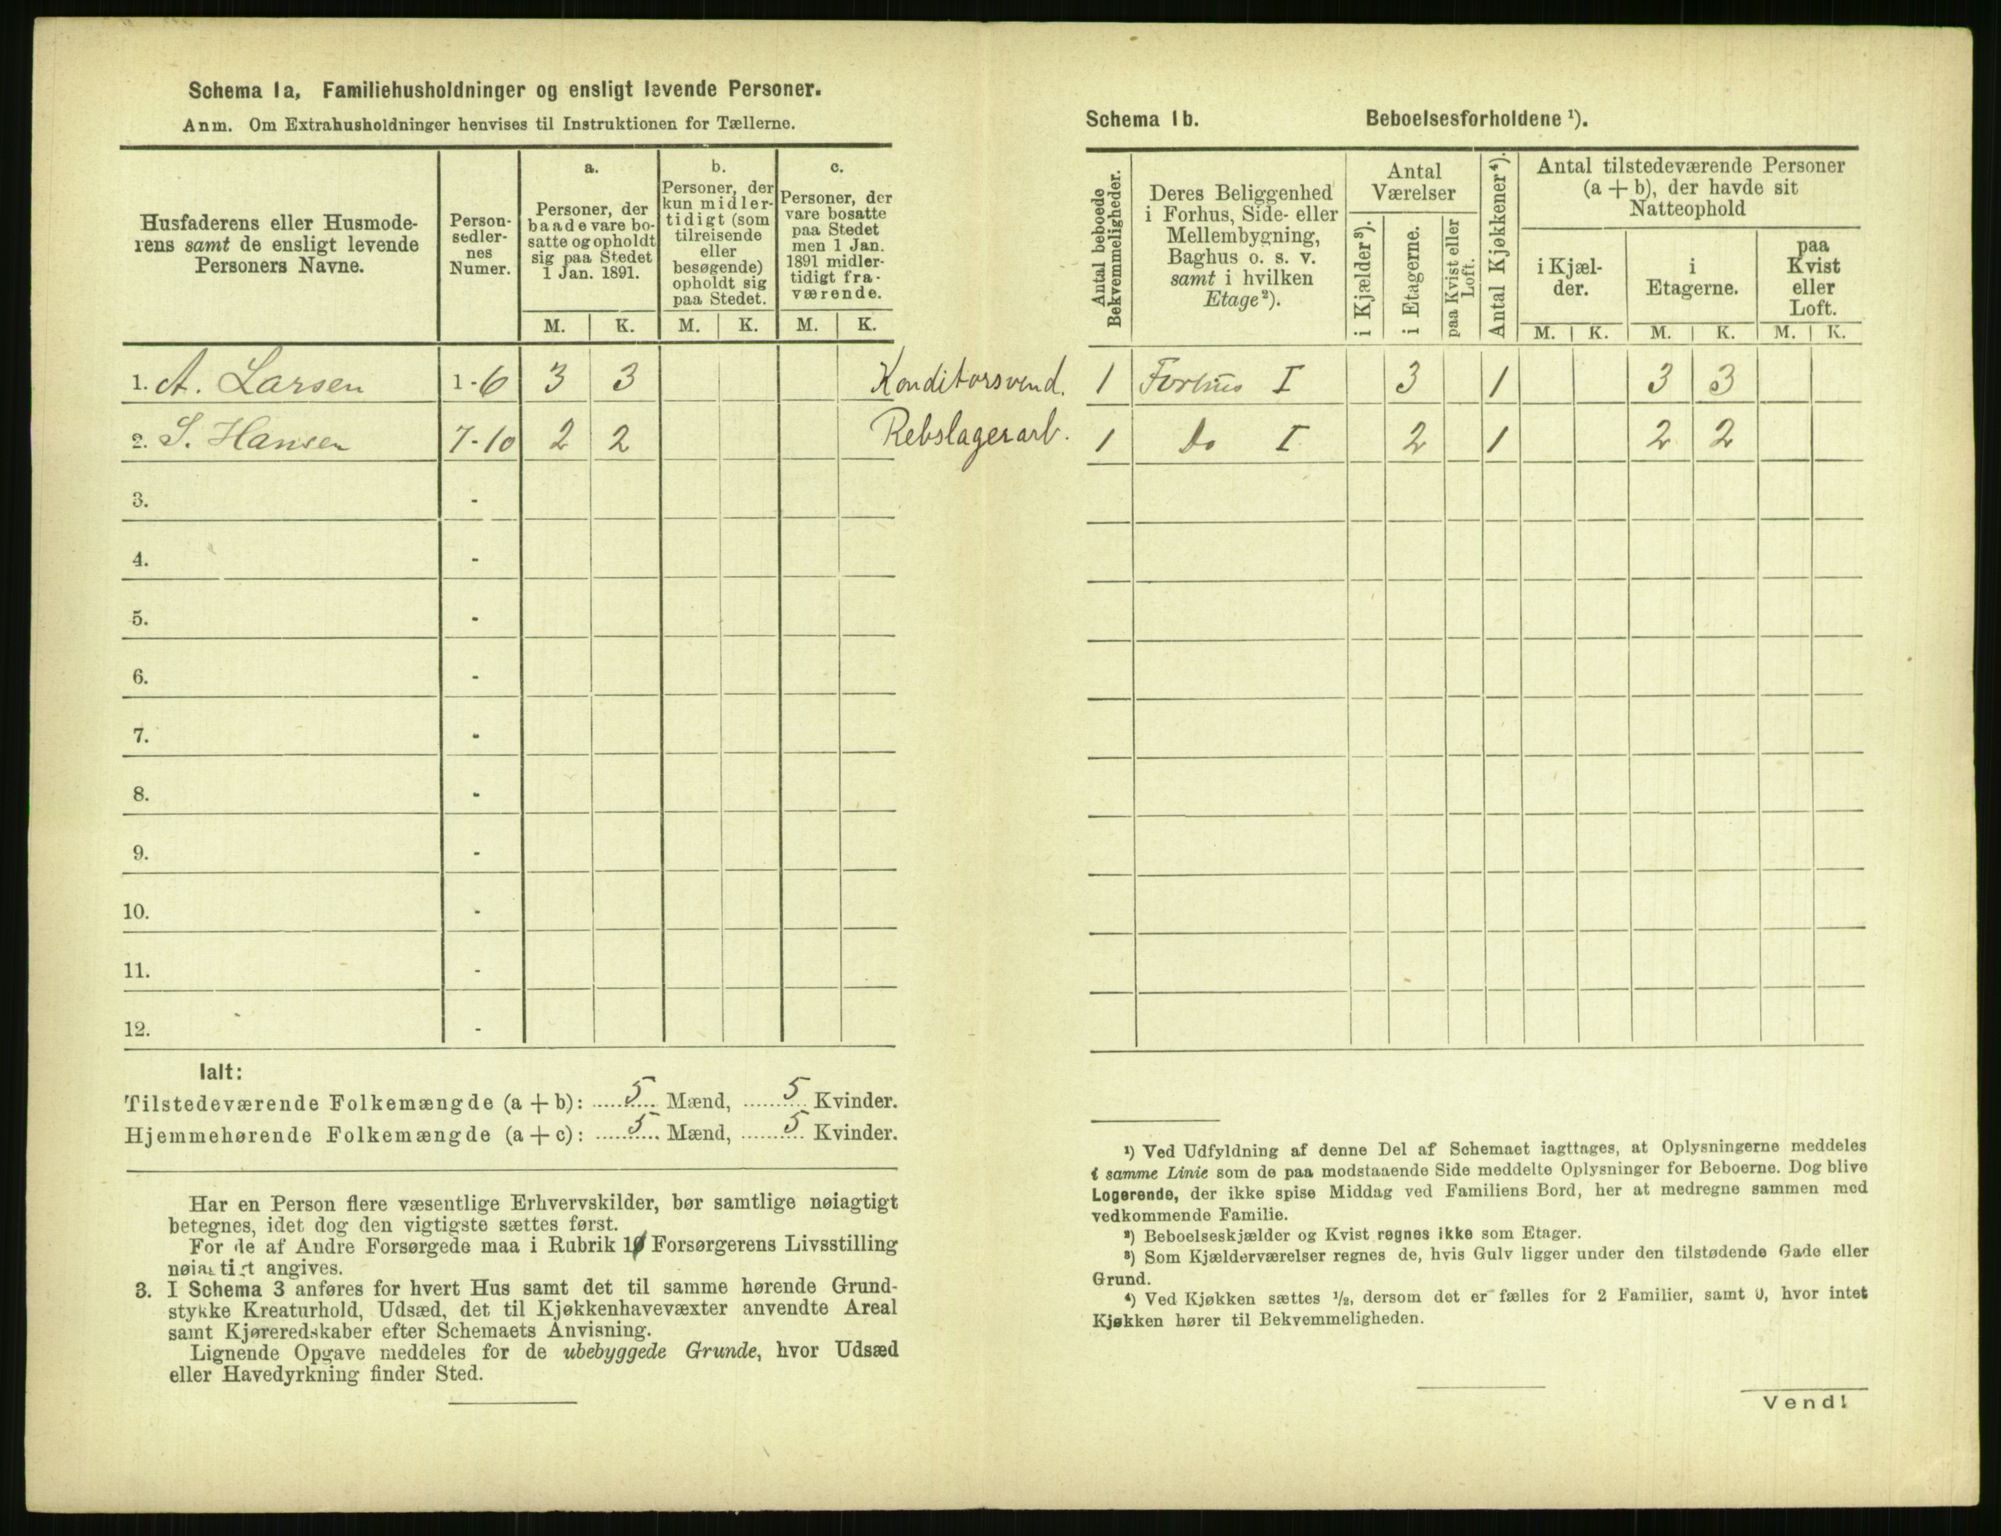 Schema 1a, Familiehusholdninger og ensligt levende Personer.
Anm. Om Extrahusholdninger henvises til Instruktionen for Tællerne.
Husfaderens eller Husmode-
rens samt de ensligt levende
Personers Navne.
Person-
sedler-
nes
Numer.
a.
Personer, der
baade vare bo-
satte og opholdt
sig paa Stedet
1 Jan. 1891.
b.
Personer, der
kun midler-
tidigt (som
tilreisende
eller
besøgende)
opholdt sig
paa Stedet.
c.
Personer, der
vare bosatte
paa Stedet
men 1 Jan.
1891 midler-
tidigt fra-
værende.
M. K. M. K. M. K.
1. A. Larsen 1-6 3 3 Konditorsvend.
2. S. Hansen 7-10 2 2 Rebslagerarb.
3. -
4. -
5. -
6. -
7. -
8. -
9. -
10. -
11. -
12. -
Ialt:
Tilstedeværende Folkemængde (a + b): 5 Mænd, 5 Kvinder.
Hjemmehørende Folkemængde (a + c): 5 Mænd, 5 Kvinder.
Har en Person flere væsentlige Erhvervskilder, bør samtlige nøiagtigt
betegnes, idet dog den vigtigste sættes først.
For de af Andre Forsørgede maa i Rubrik 10 Forsørgerens Livsstilling
nøiagtigt angives.
3. I Schema 3 anføres for hvert Hus samt det til samme hørende Grund-
stykke Kreaturhold, Udsæd, det til Kjøkkenhavevæxter anvendte Areal
samt Kjøreredskaber efter Schemaets Anvisning.
Lignende Opgave meddeles for de ubebyggede Grunde, hvor Udsæd
eller Havedyrkning finder Sted.
Schema 1b. Beboelsesforholdene ¹).
Antal beboede
Bekvemmeligheder.
Deres Beliggenhed
i Forhus, Side- eller
Mellembygning,
Baghus o. s. v.
samt i hvilken
Etage²).
Antal
Værelser
i Kjælder³).
i Etagerne.
paa Kvist eller
Loft.
Antal Kjøkkener⁴).
Antal tilstedeværende Personer
(a + b), der havde sit
Natteophold
i Kjæl-
der.
i
Etagerne.
paa
Kvist
eller
Loft.
M. K. M. K. M. K.
1 Forhus I 3 1 3 3
1 Do I 2 1 2 2
¹) Ved Udfyldning af denne Del af Schemaet iagttages, at Oplysningerne meddeles
i samme Linie som de paa modstaaende Side meddelte Oplysninger for Beboerne. Dog blive
Logerende, der ikke spise Middag ved Familiens Bord, her at medregne sammen med
vedkommende Familie.
²) Beboelseskjælder og Kvist regnes ikke som Etager.
³) Som Kjælderværelser regnes de, hvis Gulv ligger under den tilstødende Gade eller
Grund.
⁴) Ved Kjøkken sættes ½, dersom det er fælles for 2 Familier, samt 0, hvor intet
Kjøkken hører til Bekvemmeligheden.
Vend!